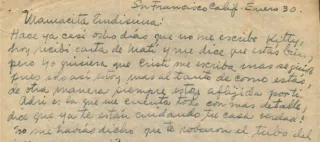 Sn Francisco Calif. Enero 30.
Mamacita lindisima!
Hace ya casi ocho dias que no me escribe Kitty,
hoy recibi carta de Mati y me dice que estás bien,
pero yo quisiera que Cristi me escriba mas seguido
pues solo asi estoy mas al tanto de como estás,
de otra manera siempre estoy aflijida por ti.
Adri es la que me cuenta todo con mas detalle,
dice que ya te están cuidando tu casa verdad?
no me habias dicho que te robaron el tubo del